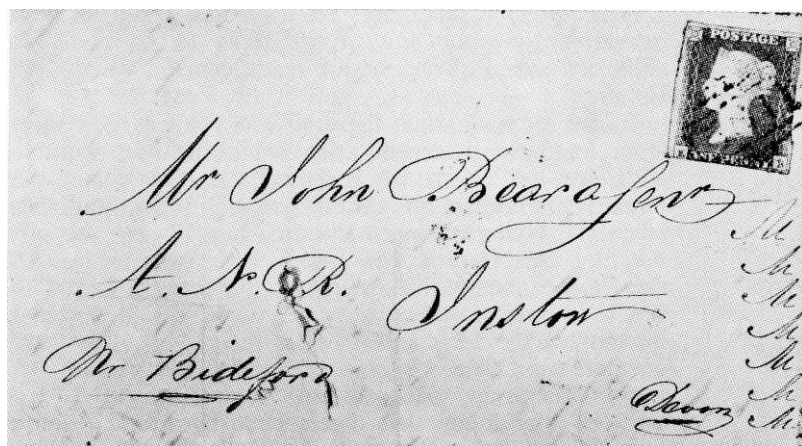 POSTAGE
ONE PENNY
Mr John Beara Senr
A. N. R.
Instow
Nr Bideford
Devon
M
M
M
M
M
M
M